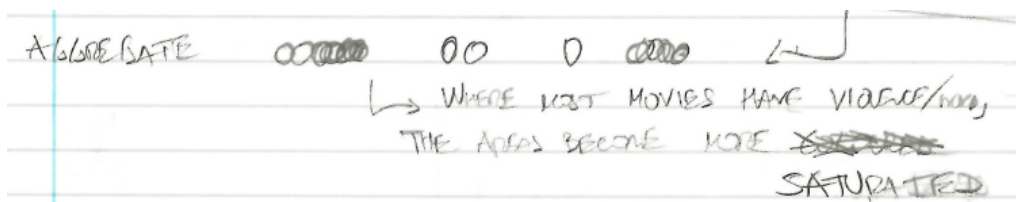 AGGREGATE
WHERE MOST MOVIES HAVE VIOLENCE/
THE AREAS BECOME MORE
SATURATED